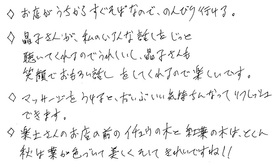 ◇ お店がうちからすぐそばなので、のんびり行ける。
◇ 晶子さんが、私のいろんな話しをじっと
聴いてくれるのでうれしいし、晶子さんも
笑顔でおもろい話しをしてくれるので楽しいです。
◇ マッサージをうけると、だいぶいい気持ちになってリフレッシュ
できます。
◇ 栗士さんのお店の前のイチョウの木と紅葉の木は、とくに
秋は葉が色づいて美しくそしてきれいですね!!